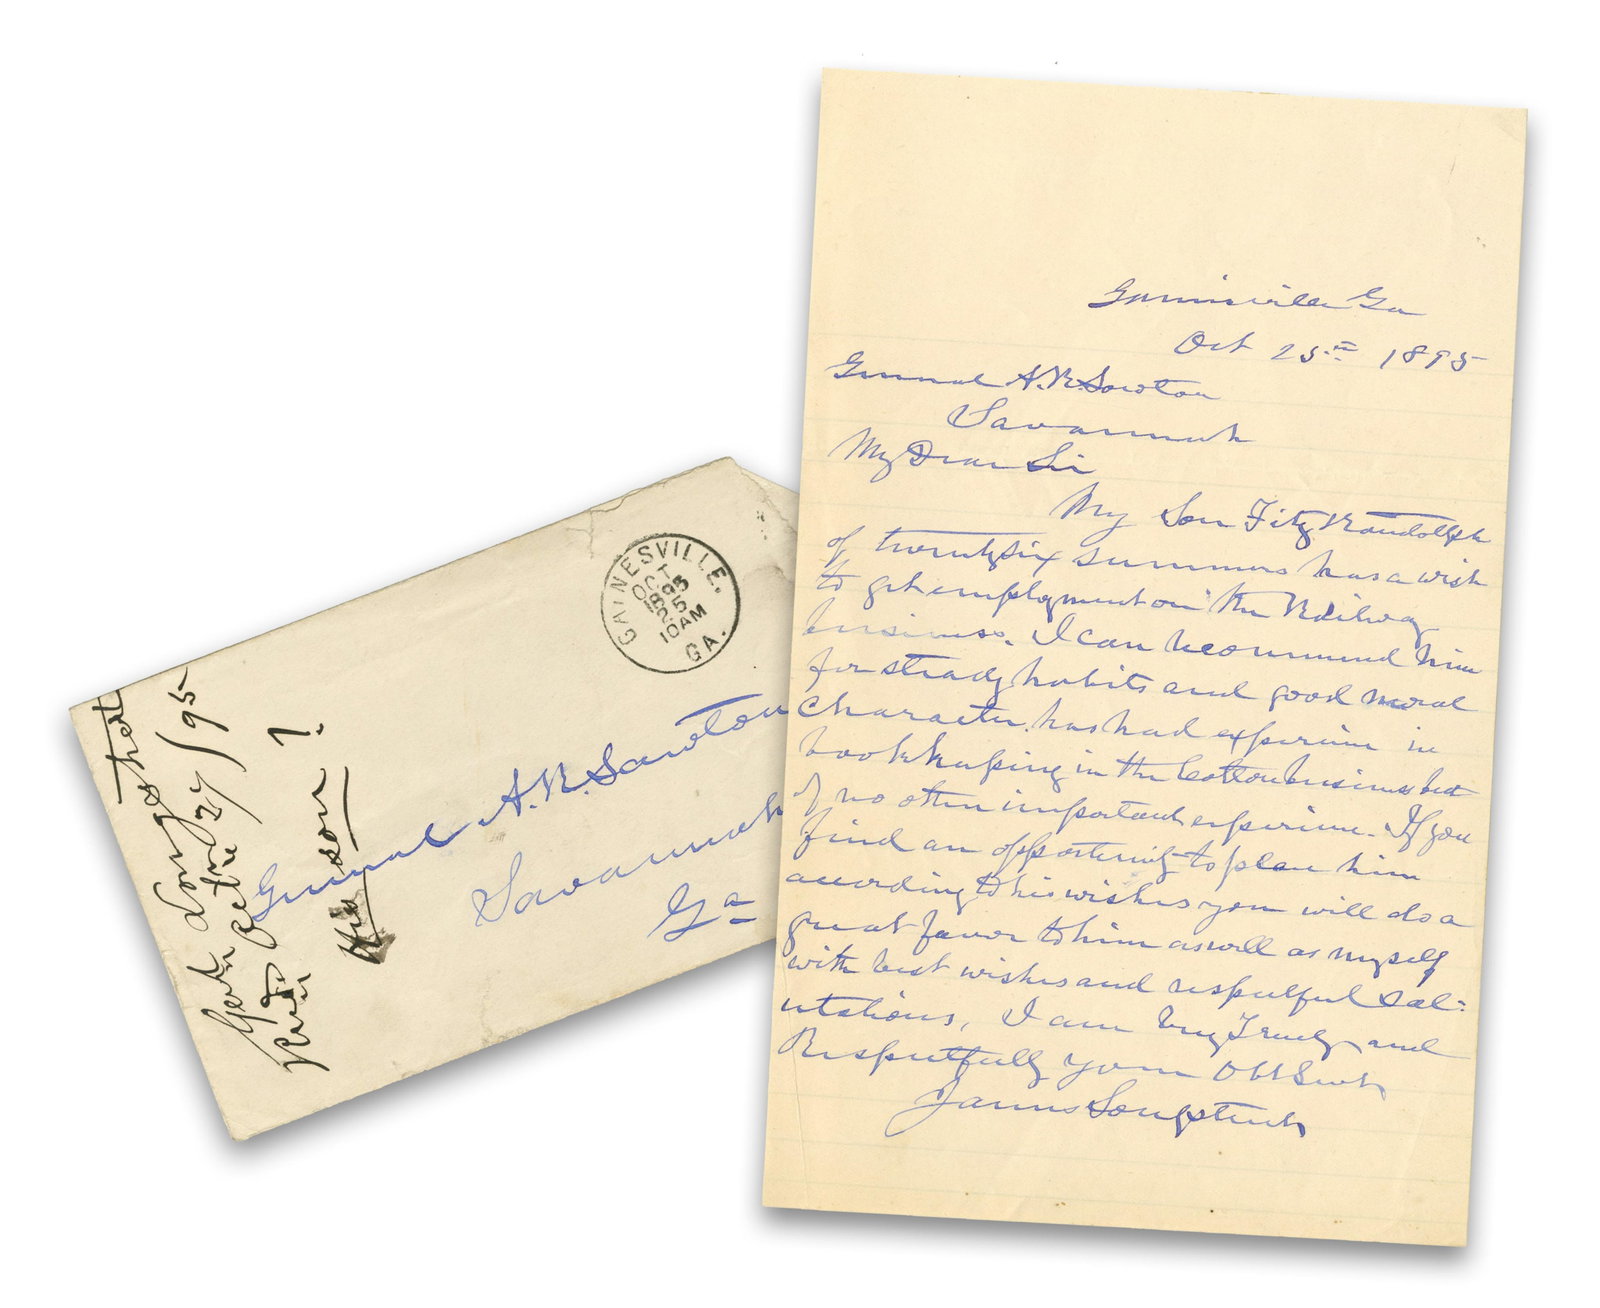 Gainesville Ga
Oct 25th 1895
General A. R. Lawton
Savannah
My Dear Sir
My Son Fitz Randolph
of twenty six summers has a wish
to get employment on the Railway
business. I can recommend him
for steady habits and good moral
character. has had experience in
book keeping in the Cotton business but
of no other important experience. If you
find an opportunity to place him
according to his wishes you will do a
great favor to him as well as myself
with best wishes and respectful sal=
utations, I am Very Truly and
Respectfully your Obt Servt
James Longstreet
GAINESVILLE, GA.
OCT
25
1895
10AM
General A. R. Lawton
Savannah
Ga
Genl Longstreet
Octbr 27/95
his son !